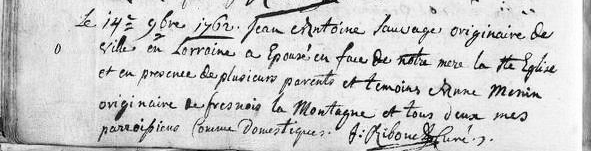 Le 14e 9bre 1762. Jean Antoine Sauvage originaire de
ville en Lorraine a Epousé en face de notre mere la Ste Eglise
et en presence de plusieurs parents et temoins Anne Menin
originaire de fresnois la Montagne et tous deux mes
parroissiens Comme Domestiques. J: Riboux Curé.